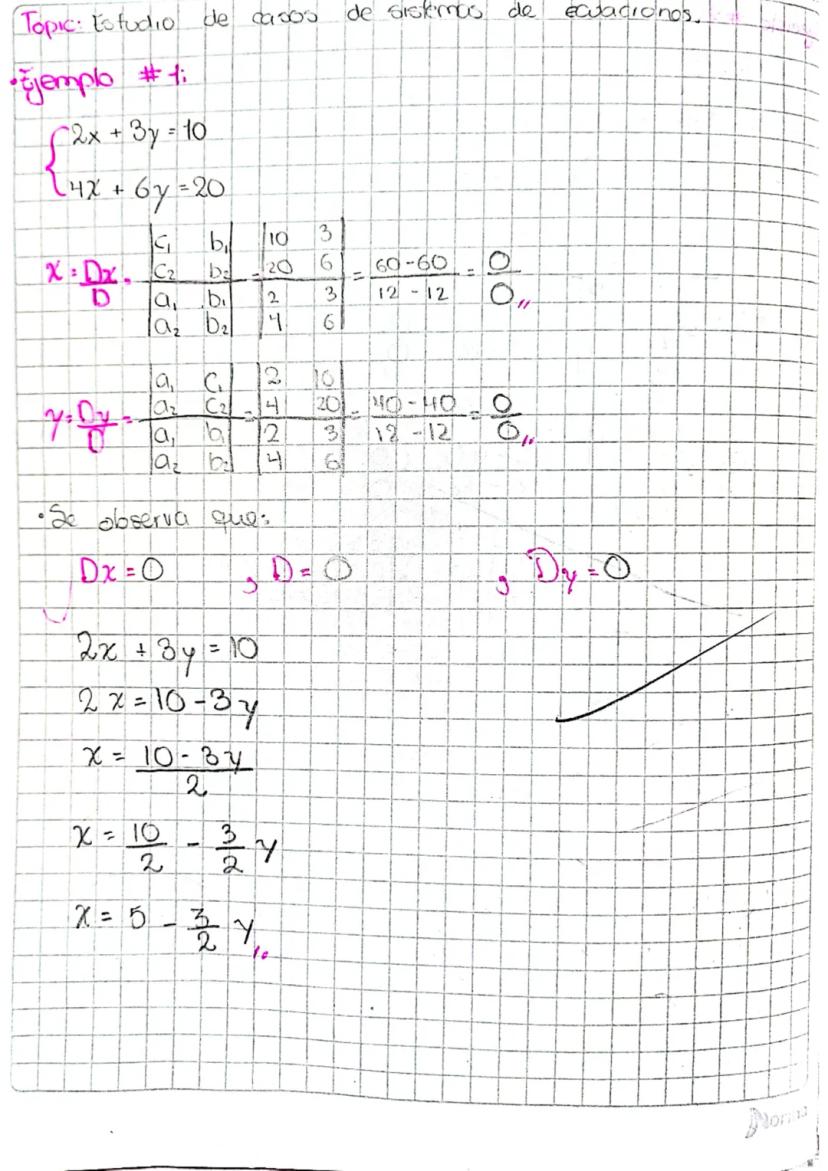 Topic: Estudio de casos de sistemas de ecuaciones.
• Ejemplo # 1:
2x + 3y = 10
4x + 6y = 20
x = Dx/D = |c₁ b₁; c₂ b₂| / |a₁ b₁; a₂ b₂| = |10 3; 20 6| / |2 3; 4 6| = (60 - 60)/(12 - 12) = 0/0,,
y = Dy/D = |a₁ c₁; a₂ c₂| / |a₁ b₁; a₂ b₂| = |2 10; 4 20| / |2 3; 4 6| = (40 - 40)/(12 - 12) = 0/0,,
• Se observa que:
Dx = 0 , D = 0 , Dy = 0
2x + 3y = 10
2x = 10 - 3y
x = (10 - 3y)/2
x = 10/2 - 3/2 y
x = 5 - 3/2 y,,
Norma